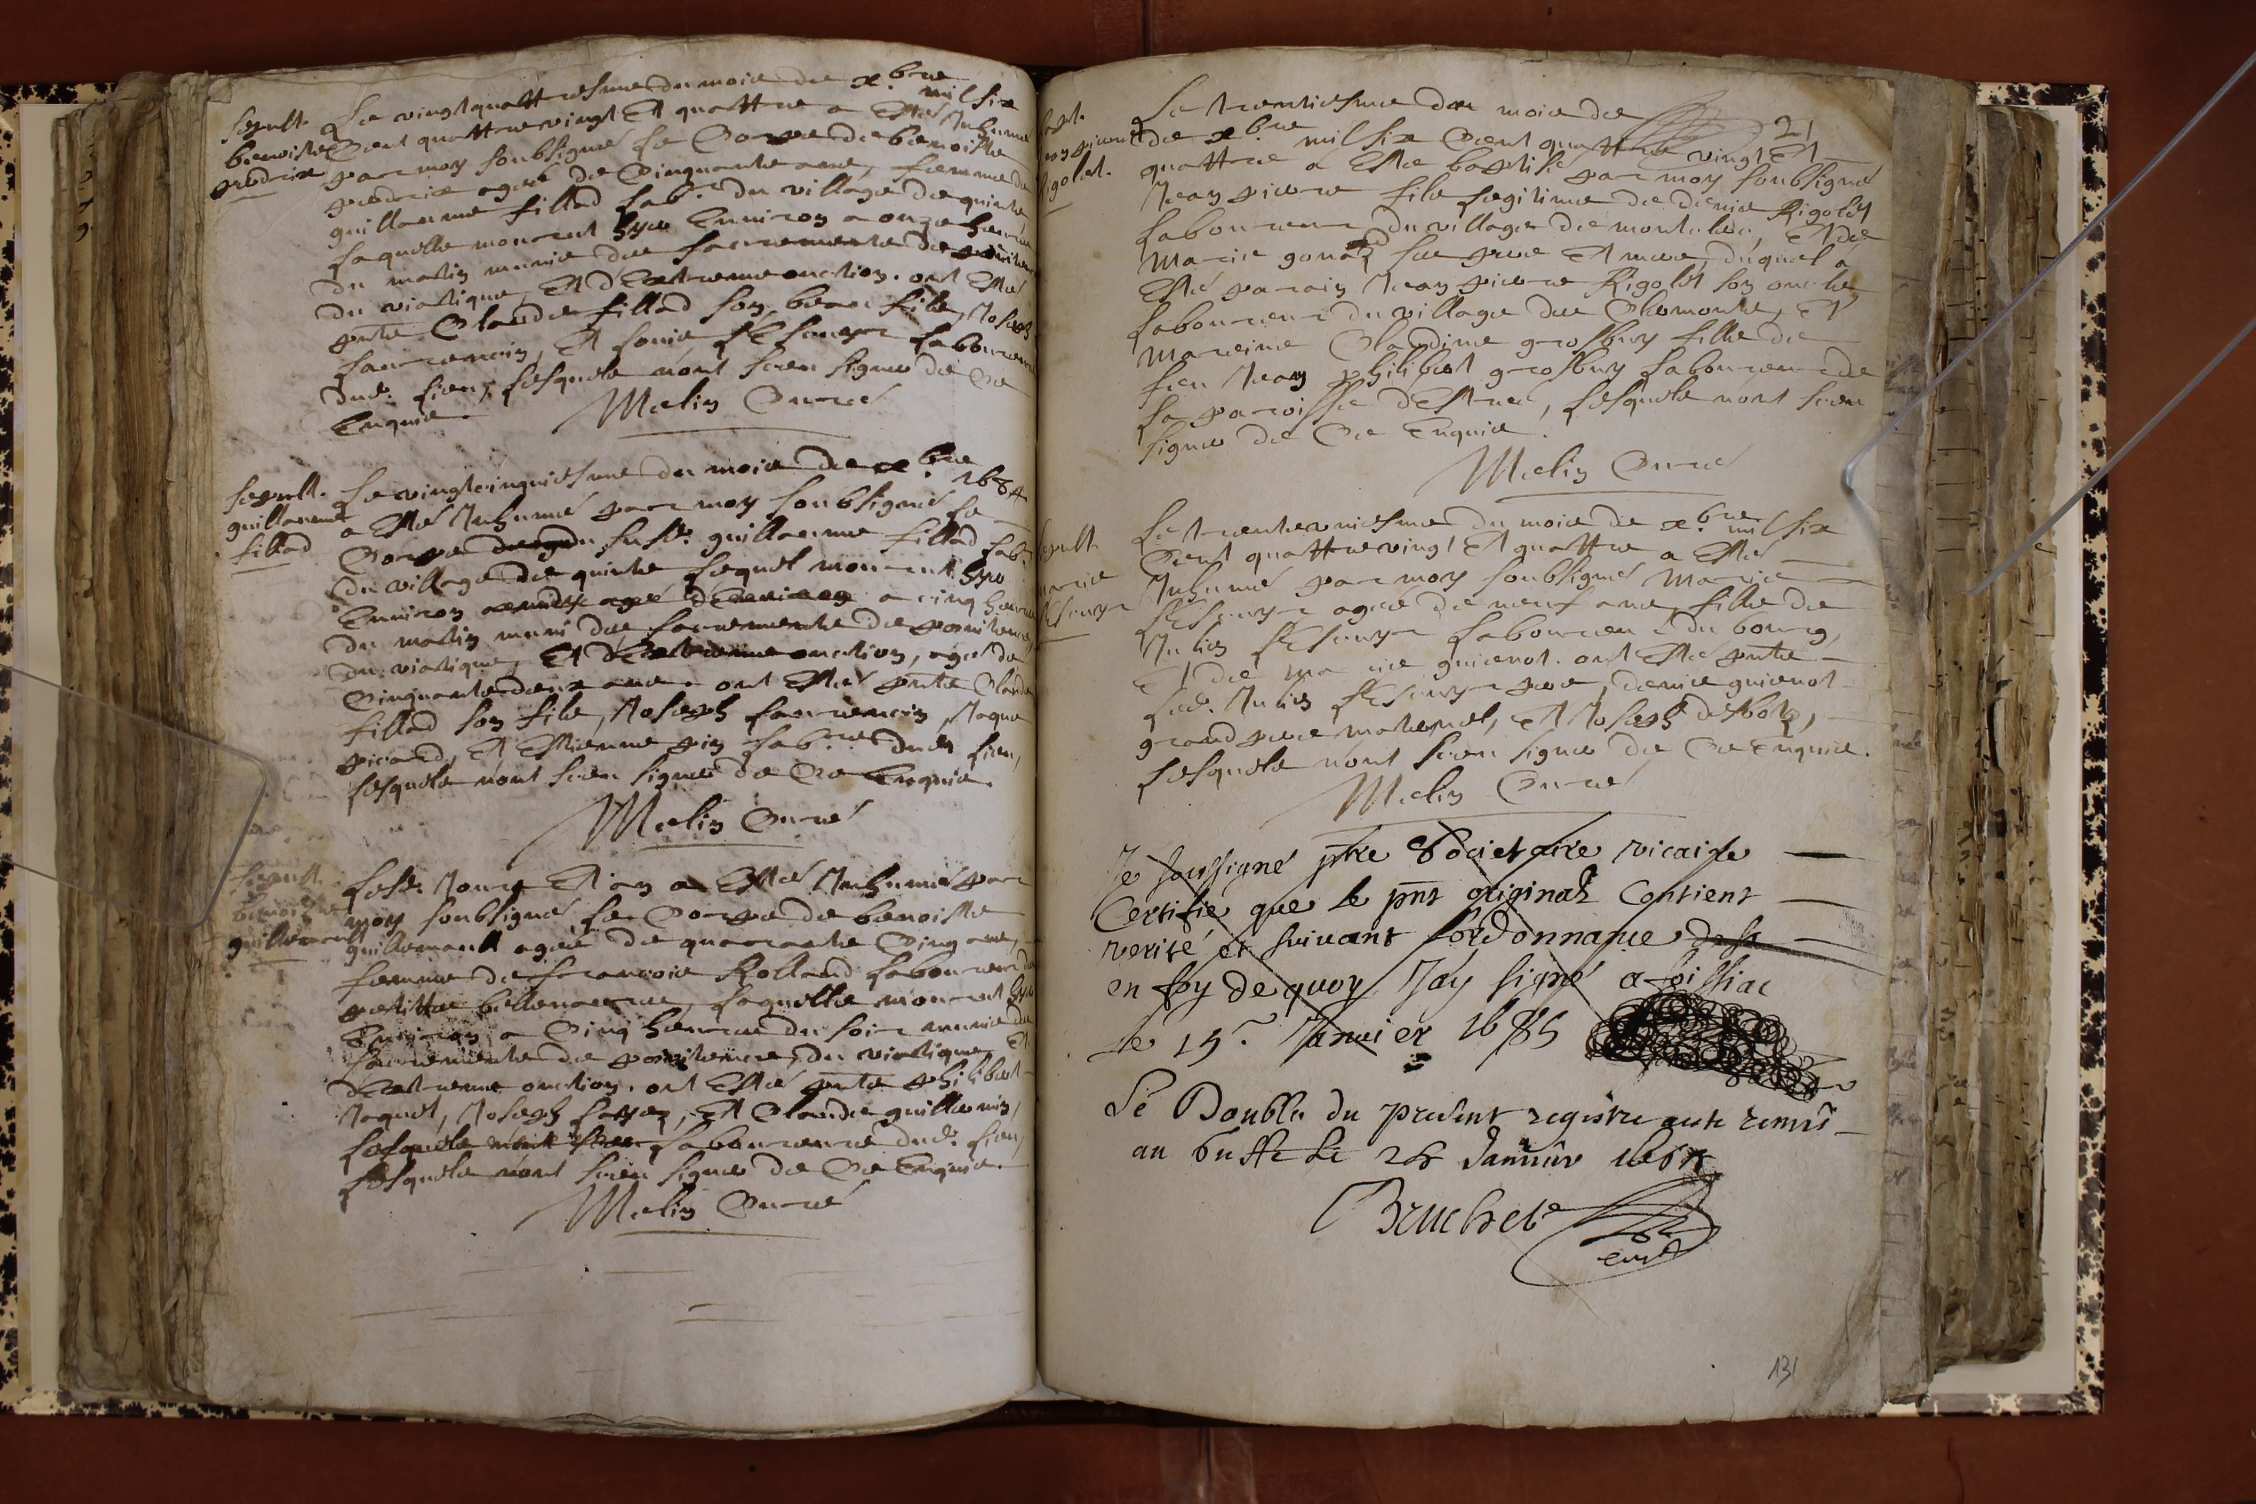 Sepult.
benoiste
perdrix
Le vingtquattriesme du mois de xbre mil six
Cent quattrevingt Et quattre a Esté Inhumé
par moy soubsigné Le Corps de benoiste
perdrix agée de Cinquante ans, femme de
guillaume fillod Lab.r du village de quinte
Laquelle mourut hyer Environ a onze heures
du matin munie des sacrements de penitence
du viatique, Et d'Extreme onction. ont Esté
pnts Claude fillod son beau fils, Joseph
Laurencin, Et Louis Leseuyr Laboureurs
dud. lieu, Lesquels n'ont sceu signer de Ce
Enquis.
Melin Curé
Sepult.
guillaume
fillod
Le vingtcinquiesme du mois de xbre 1684
a Esté Inhumé par moy soubsigné Le
Corps susd. guillaume fillod Lab.r
du village de quinte Lequel mourut hyer
Environ a cinq heures
du matin muni des sacrements de penitence,
du viatique, Et d'Extreme onction, agé de
Cinquante deux ans. ont Esté pnts Claude
fillod son fils, Joseph Laurencin, Jaque
picard, Et Estienne pin Lab.rs dud. lieu,
Lesquels n'ont sceu signer de Ce Enquis.
Melin Curé
Sepult.
benoiste
guillemault
Lesd. Jour Et an a Esté Inhumé par
moy soubsigné Le Corps de benoiste
guillemault agée de quarante Cinq ans,
femme de francois Rolland Laboureur de
petitte billenavre, Laquelle mourut hyer
Environ a Cinq heures du soir munie des
sacrements de penitence, du viatique, Et
d'Extreme onction. ont Esté pnts philibert
Jaquet, Joseph Layaz, Et Claude guillemin,
Laboureurs dud. lieu,
Lesquels n'ont sceu signer de Ce Enquis.
Melin Curé
21
Rigolet.
Le trentiesme du mois de
de xbre mil six Cent quattre vingt Et
quattre a Esté baptisé par moy soubsigné
Jean pierre fils Legitime de denis Rigolet
Laboureur du village de montaleu, Et de
Marie gonod ses pere Et mere, duquel a
Esté parain Jean pierre Rigolet son oncle
Laboureur du village de Chemonte, Et
Mareine Claudine grosbuy fille de
feu Jean philibert grosbuy Laboureur de
La paroisse d'Estrée, Lesquels n'ont sceu
signer de Ce Enquis.
Melin Curé
Sepult
marie
Lesuyr
Le trenteuniesme du mois de xbre mil six
Cent quattrevingt Et quattre a Esté
Inhumé par moy soubsigné Marie
Lesuyr agée de neuf ans, fille de
Julien Lesuyr Laboureur du bourg,
Et de marie guienot. ont Esté pnts
Led. Julien Lesuyr pere, denis guienot
grand pere maternel, Et Joseph desboz,
Lesquels n'ont sceu signer de Ce Enquis.
Melin Curé
Je soussigné ptre Societaire vicaire
Certifie que le pnt original Contient
verité, et suivant l'ordonnance
en foy de quoy J'ay signé a foissiac
le 15. Janvier 1685
Le Double du present registre aeste remis
au Greffe Le 26 Janvier 1685
Bruchet
curé
131